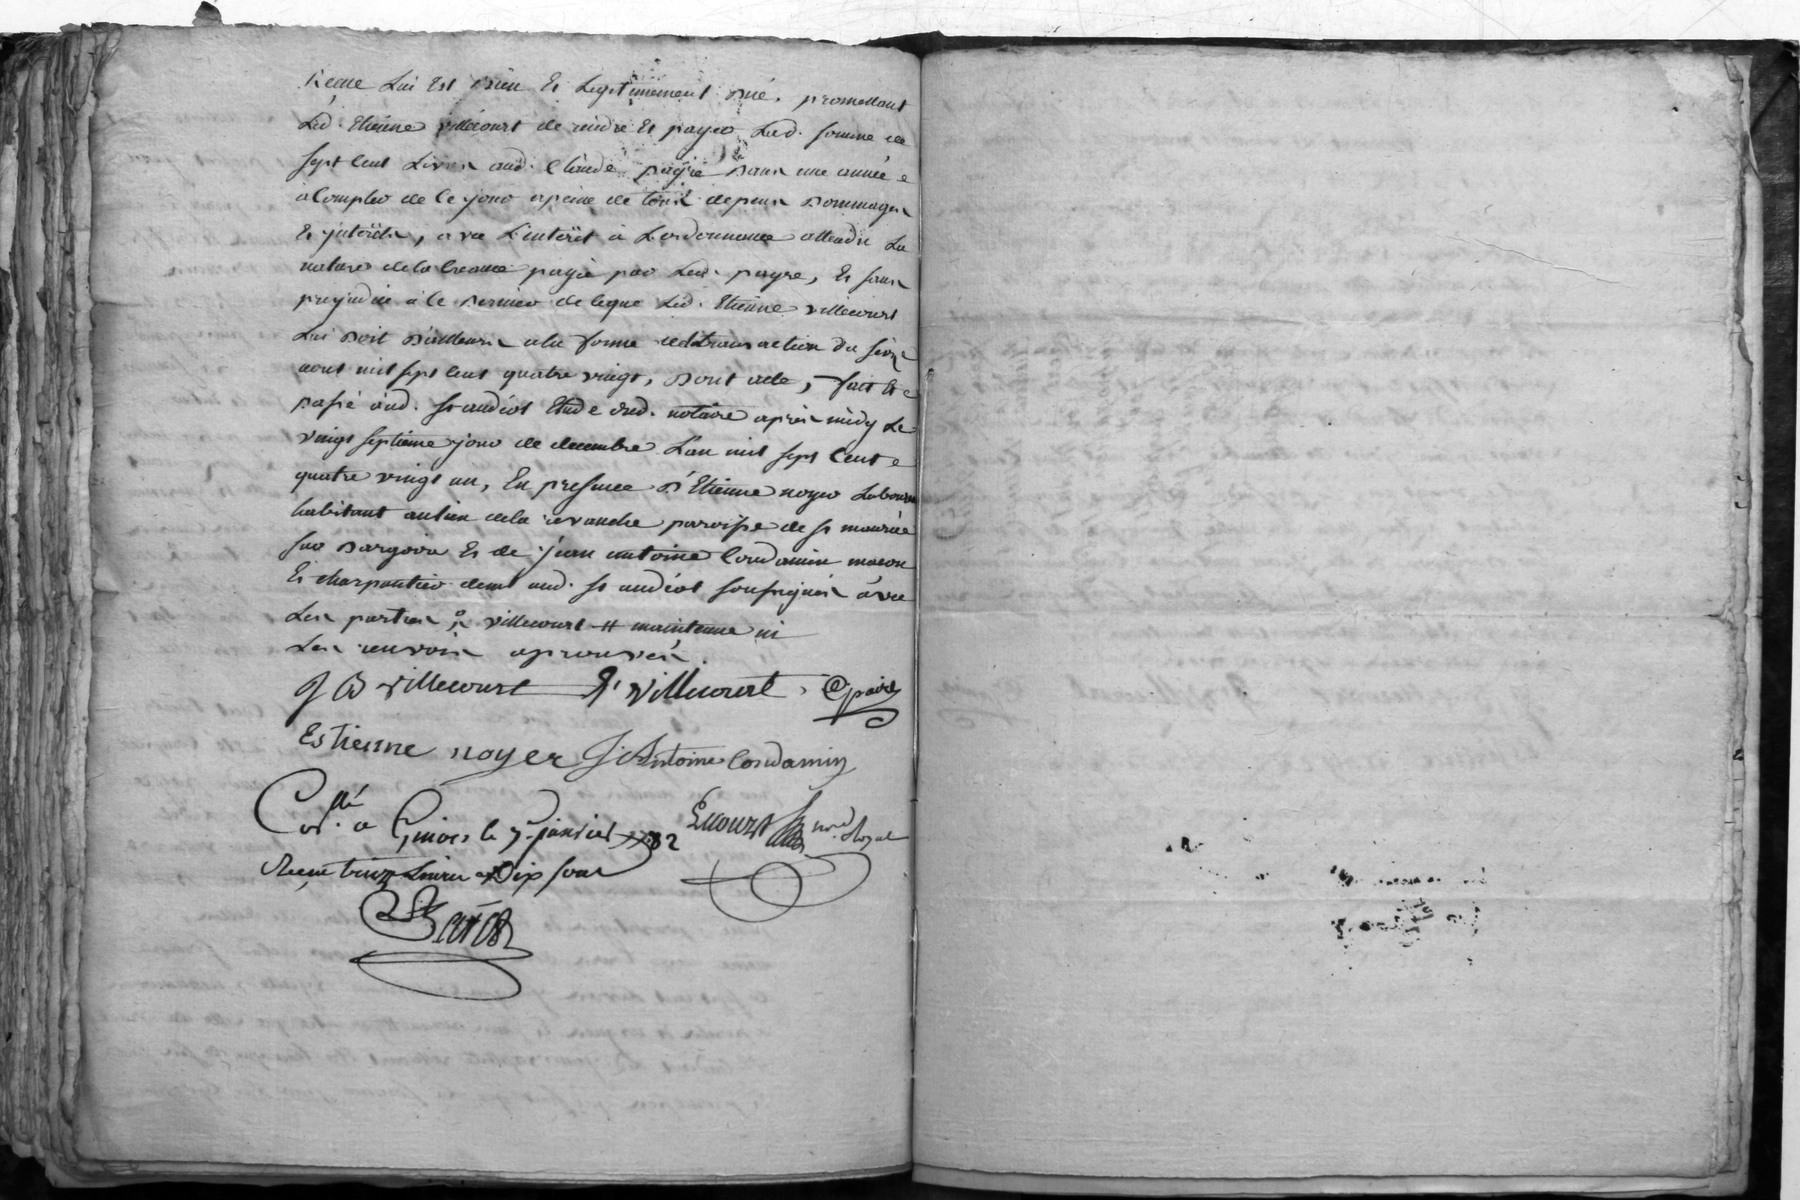 lui est bien et legitimement due, promettant
Led. Etienne villecourt de rendre et payer Lad. somme de
sept cent Livres aud. Claude payre dans une année
a Compter de ce jour a peine de tous depens dommages
et interets, avec L'interêt à L'ordonnance attendu La
nature de la Creance payée par Led. payre, et sans
prejudice à ce dernier de ceque Led. Etienne villecourt
Lui doit d'ailleurs a la forme de la transaction du seize
aout mil sept cent quatre vingt, dont acte, fait et
passé aud. st andéol Etude dud. notaire après midy Le
vingt septième jour de decembre L'an mil sept Cent
quatre vingt un, En presence d'Etienne noyer Laboureur
habitant au lieu de la revanche paroisse de st maurice
sur dargoire et de jean antoine Condamin macon
Et charpentier demt aud. st andéol soussignés avec
Les parties, villecourt # maintenue
Les renvois aprouvés.
J B villecourt E. villecourt. C paire
Estienne noyer J Antoine Condamin
Collé a Givors le 7 janvier 1782
Ecourt nore Royal
Reçu treize Livres Dix sous